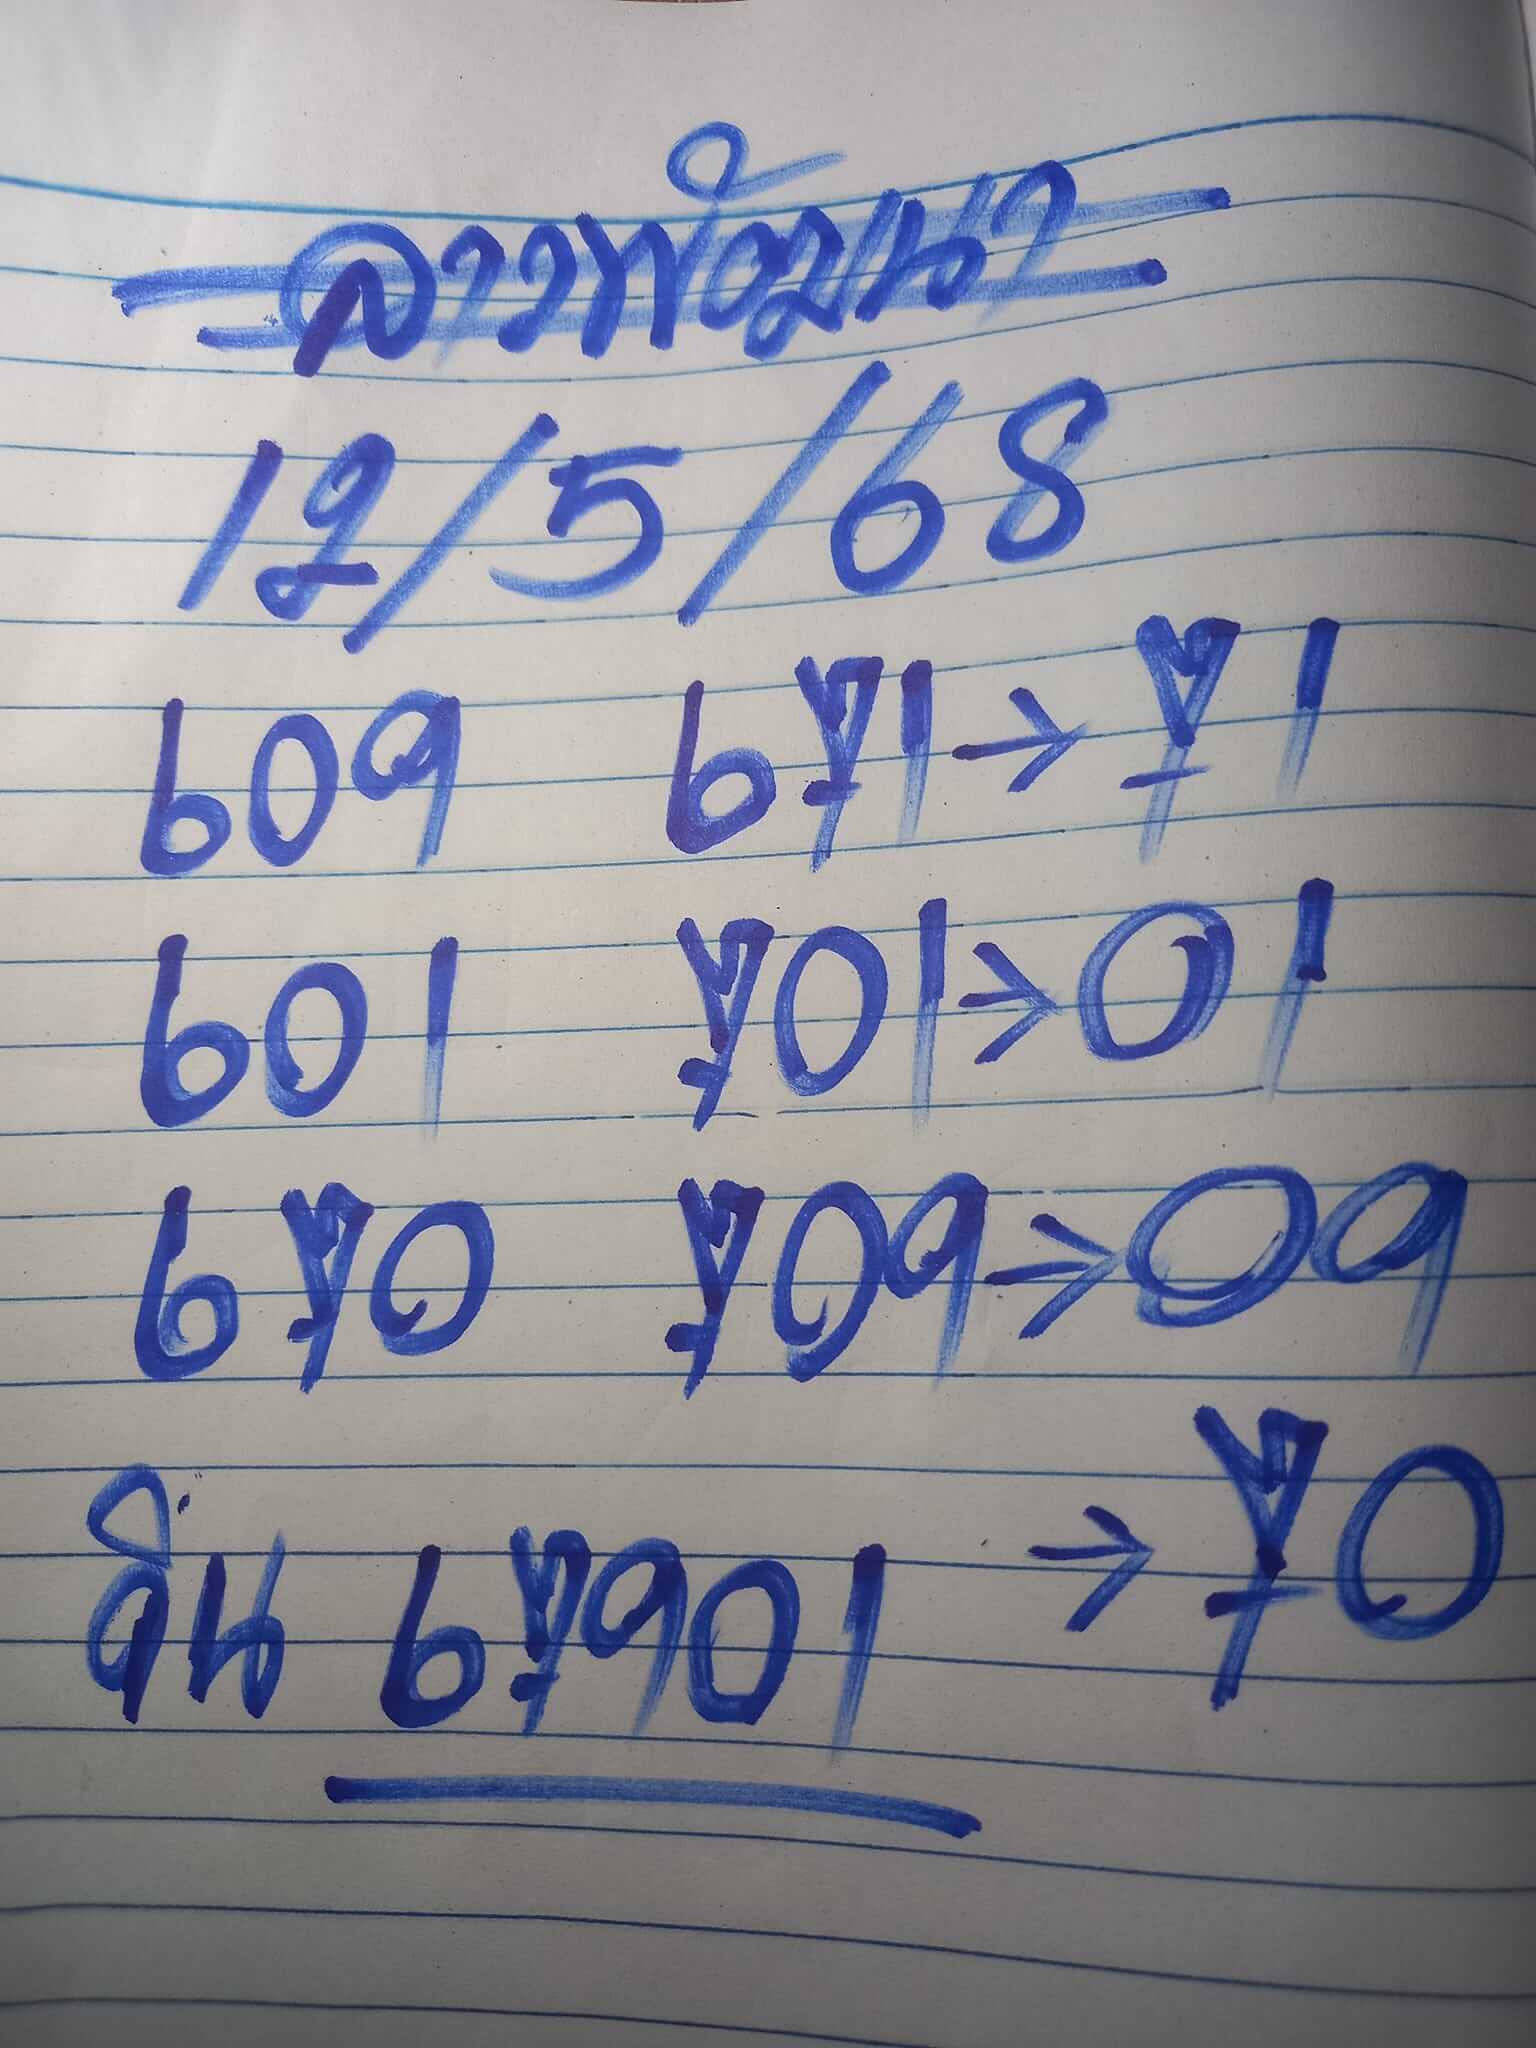 ลาวพัฒนา
12/5/68
609 671→71
601 701→01
670 709→09
วิน 67901 →70